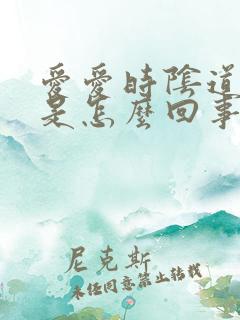 愛愛時陰道
是怎麼回事
尼克斯
未經同意禁止轉載